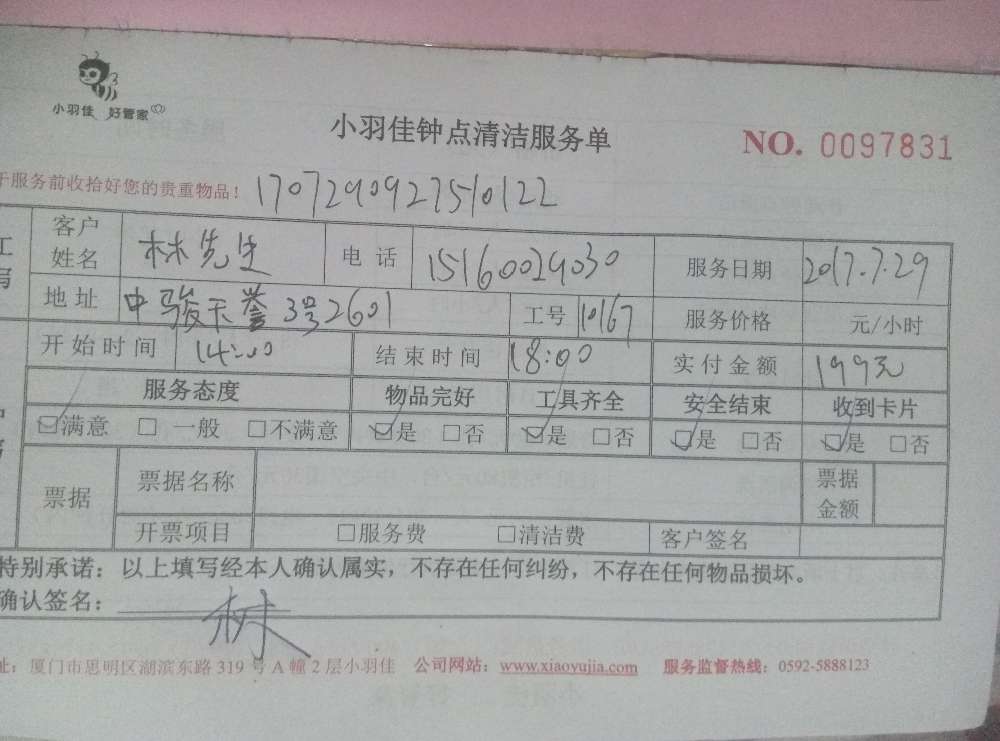 小羽佳 好管家
小羽佳钟点清洁服务单
NO. 0097831
于服务前收拾好您的贵重物品！ 1707290927510122
客户姓名 林先生 电话 15160029030 服务日期 2017.7.29
地址 中骏天誉3号2601 工号 10167 服务价格 元/小时
开始时间 14:00 结束时间 18:00 实付金额 199元
服务态度 物品完好 工具齐全 安全结束 收到卡片
☑满意 □一般 □不满意 ☑是 □否 ☑是 □否 ☑是 □否 ☑是 □否
票据 票据名称 票据金额
开票项目 □服务费 □清洁费 客户签名
特别承诺：以上填写经本人确认属实，不存在任何纠纷，不存在任何物品损坏。
确认签名： 林
址：厦门市思明区湖滨东路 319 号 A 幢 2 层小羽佳 公司网站：www.xiaoyujia.com 服务监督热线：0592-5888123